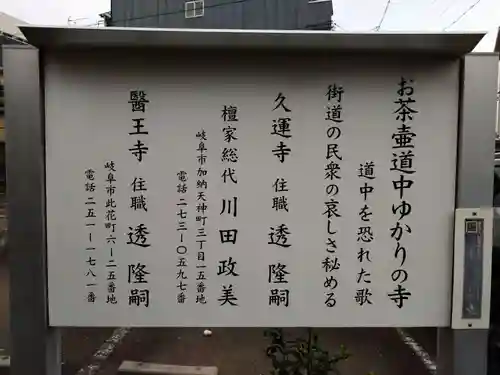 お茶壷道中ゆかりの寺
道中を恐れた歌
街道の民衆の哀しさ秘める
久運寺 住職 透隆嗣
檀家総代 川田政美
岐阜市加納天神町三丁目一五番地
電話 二七三ー〇五九七番
醫王寺 住職 透隆嗣
岐阜市此花町六ー二五番地
電話 二五一ー一七八一番